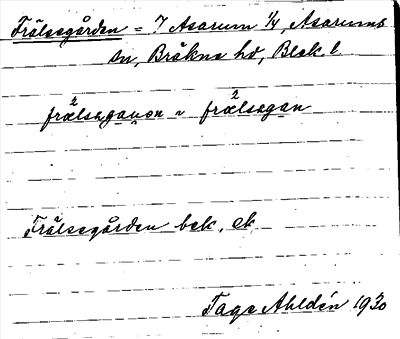 Frälsegården = 7 Asarum 1/4, Asarums
sn, Bräkne hd, Blek l.
fræ²lsəgauon ~ fræ²lsəgan
Frälsegården bek. ek
Tage Ahldén 1930